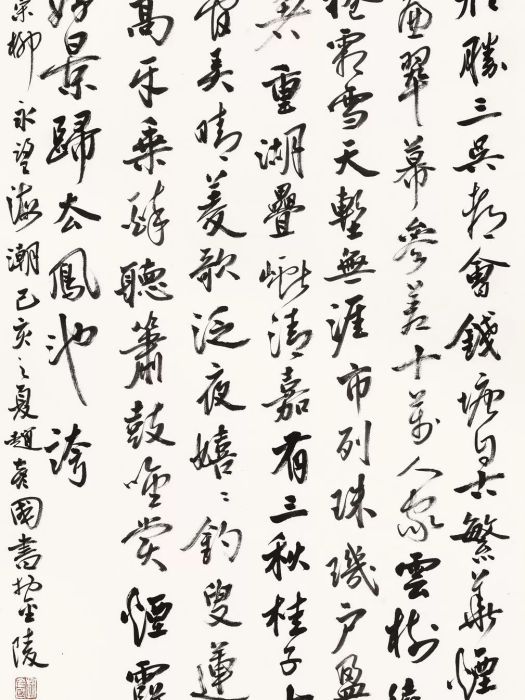 形勝三吳都會錢塘自古繁華煙
簾翠幕參差十萬人家雲樹繞
捲霜雪天塹無涯市列珠璣戶盈
重湖疊巘清嘉有三秋桂子十
管弄晴菱歌泛夜嬉〻釣叟蓮
高牙乘醉聽簫鼓吟賞煙霞
好景歸去鳳池誇
宋柳永望海潮己亥之夏趙國書於金陵